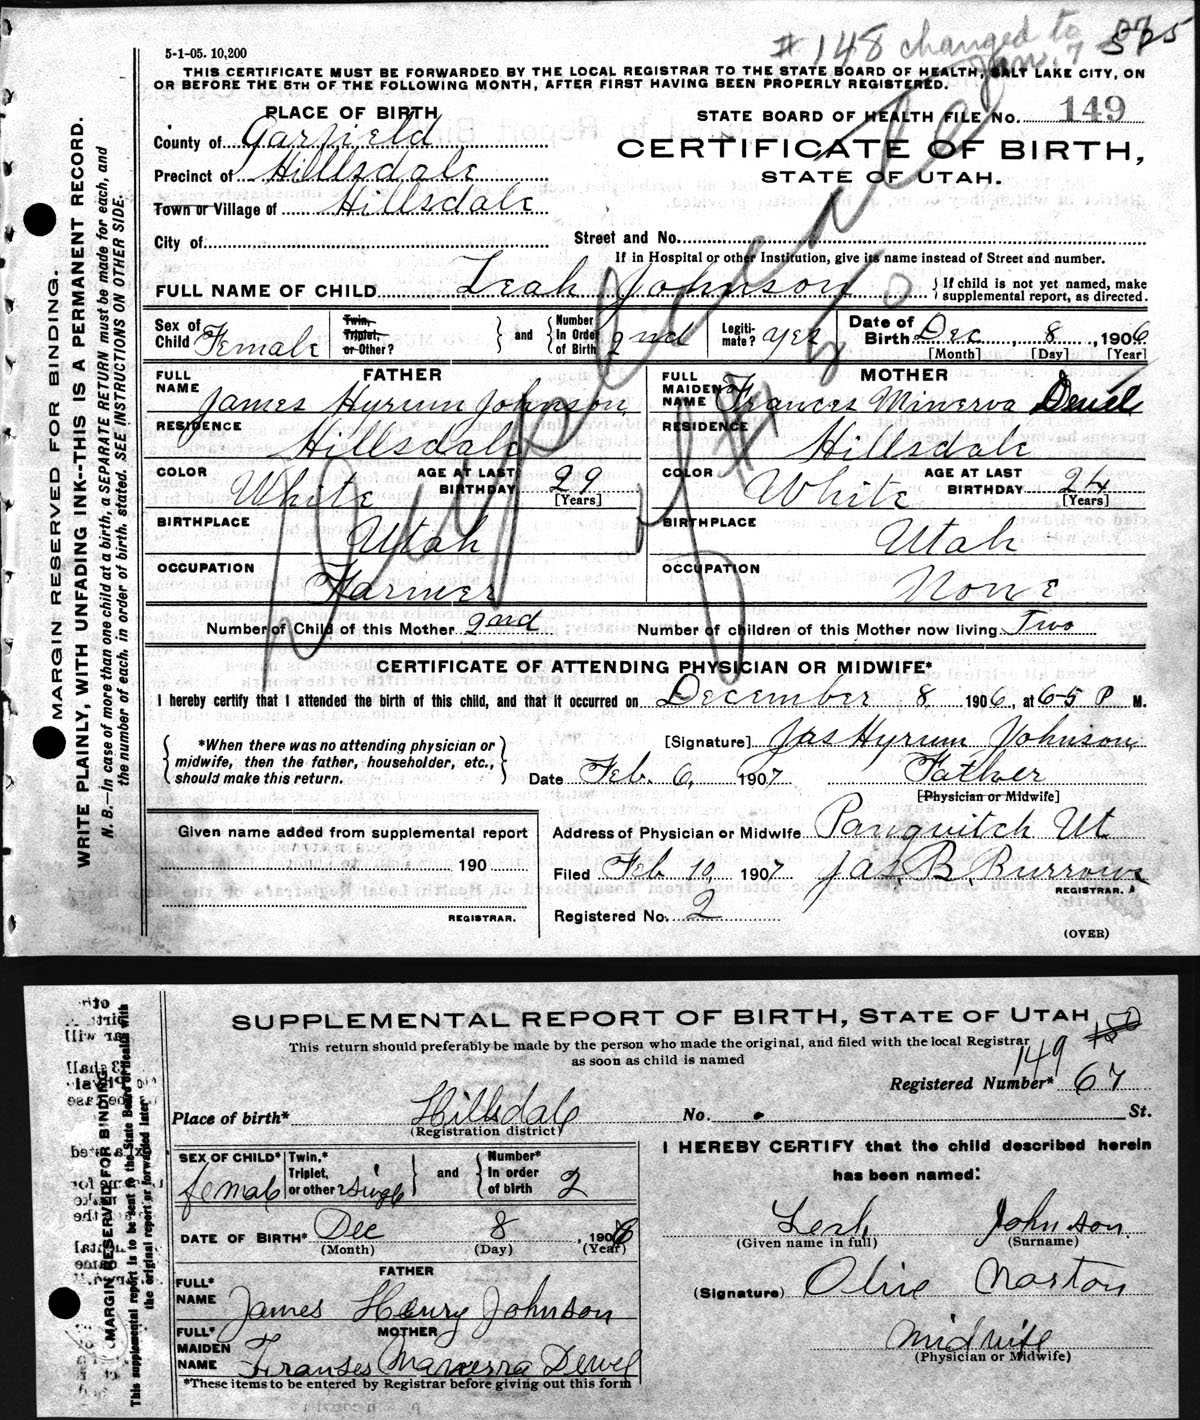 # 148 changed to 575
Jan. 7
5-1-05. 10,200
THIS CERTIFICATE MUST BE FORWARDED BY THE LOCAL REGISTRAR TO THE STATE BOARD OF HEALTH, SALT LAKE CITY, ON
OR BEFORE THE 5TH OF THE FOLLOWING MONTH, AFTER FIRST HAVING BEEN PROPERLY REGISTERED.
PLACE OF BIRTH
STATE BOARD OF HEALTH FILE No. 149
County of Garfield
CERTIFICATE OF BIRTH,
Precinct of Hilllsdale
STATE OF UTAH.
Town or Village of Hillsdale
City of
Street and No.
If in Hospital or other Institution, give its name instead of Street and number.
FULL NAME OF CHILD Leah Johnson { If child is not yet named, make
supplemental report, as directed.
Sex of Child Female
Twin, Triplet, or Other?
and
Number in Order of Birth 2nd
Legiti-mate? yes
Date of Birth Dec 8, 1906
[Month] [Day] [Year]
FATHER
FULL NAME James Hyrum Johnson
RESIDENCE Hillsdale
COLOR White
AGE AT LAST BIRTHDAY 29
[Years]
BIRTHPLACE Utah
OCCUPATION Farmer
MOTHER
FULL MAIDEN NAME Frances Minerva Deuel
RESIDENCE Hillsdale
COLOR White
AGE AT LAST BIRTHDAY 24
[Years]
BIRTHPLACE Utah
OCCUPATION None
Number of Child of this Mother 2nd
Number of children of this Mother now living Two
Duplicate of #
CERTIFICATE OF ATTENDING PHYSICIAN OR MIDWIFE*
I hereby certify that I attended the birth of this child, and that it occurred on December 8 1906, at 6-5 P M.
*When there was no attending physician or
midwife, then the father, householder, etc.,
should make this return.
[Signature] Jas Hyrum Johnson
Date Feb. 6, 1907 Father
[Physician or Midwife]
Given name added from supplemental report
190
REGISTRAR.
Address of Physician or Midwife Panguitch Ut
Filed Feb 10, 1907 Jas B Burrows
REGISTRAR.
Registered No. 2
(OVER)
MARGIN RESERVED FOR BINDING.
WRITE PLAINLY, WITH UNFADING INK--THIS IS A PERMANENT RECORD.
N. B.—In case of more than one child at a birth, a SEPARATE RETURN must be made for each, and
the number of each, in order of birth, stated. SEE INSTRUCTIONS ON OTHER SIDE.
SUPPLEMENTAL REPORT OF BIRTH, STATE OF UTAH
150
This return should preferably be made by the person who made the original, and filed with the local Registrar
as soon as child is named
149
Registered Number* 67
Place of birth* Hillsdale No. St.
(Registration district)
SEX OF CHILD* female
Twin,* Triplet, or other? single
and
Number* in order of birth 2
DATE OF BIRTH* Dec 8, 1906
(Month) (Day) (Year)
FATHER
FULL* NAME James Henry Johnson
MOTHER
FULL* MAIDEN NAME Franses Manerra Dewel
*These items to be entered by Registrar before giving out this form
I HEREBY CERTIFY that the child described herein
has been named:
Leah Johnson
(Given name in full) (Surname)
(Signature) Olive Norton
Midwife
(Physician or Midwife)
MARGIN RESERVED FOR BINDING
This supplemental report to be sent to the State Board of Health with
the original report or forwarded later.